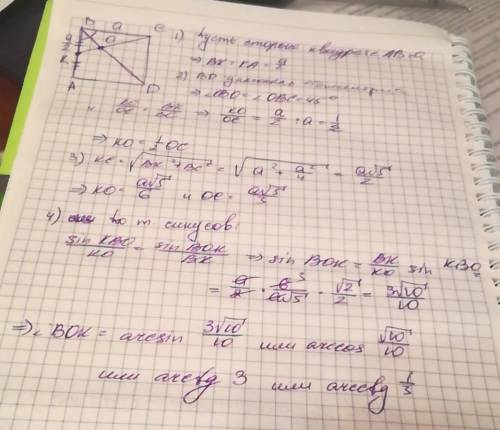 B a C
O
a/2
K
A D
1) Пусть сторона квадрата AB = a
⇒ BK = KA = a/2
2) BD
⇒ ∠KBO = ∠OBC = 45°
и KO/OC = BK/BC ⇒ KO/OC = a/2 : a = 1/2
⇒ KO = 1/2 OC
3) KC = √(BK² + BC²) = √(a² + a²/4) = a√5/2
⇒ KO = a√5/6 и OC = a√5/3
4) по т синусов:
sin KBO/KO = sin BOK/BK ⇒ sin BOK = BK/KO sin KBO
= a/2 · 6/a√5 · √2/2 = 3√10/10
⇒ ∠BOK = arcsin 3√10/10 или arccos √10/10
или arctg 3 или arcctg 1/3